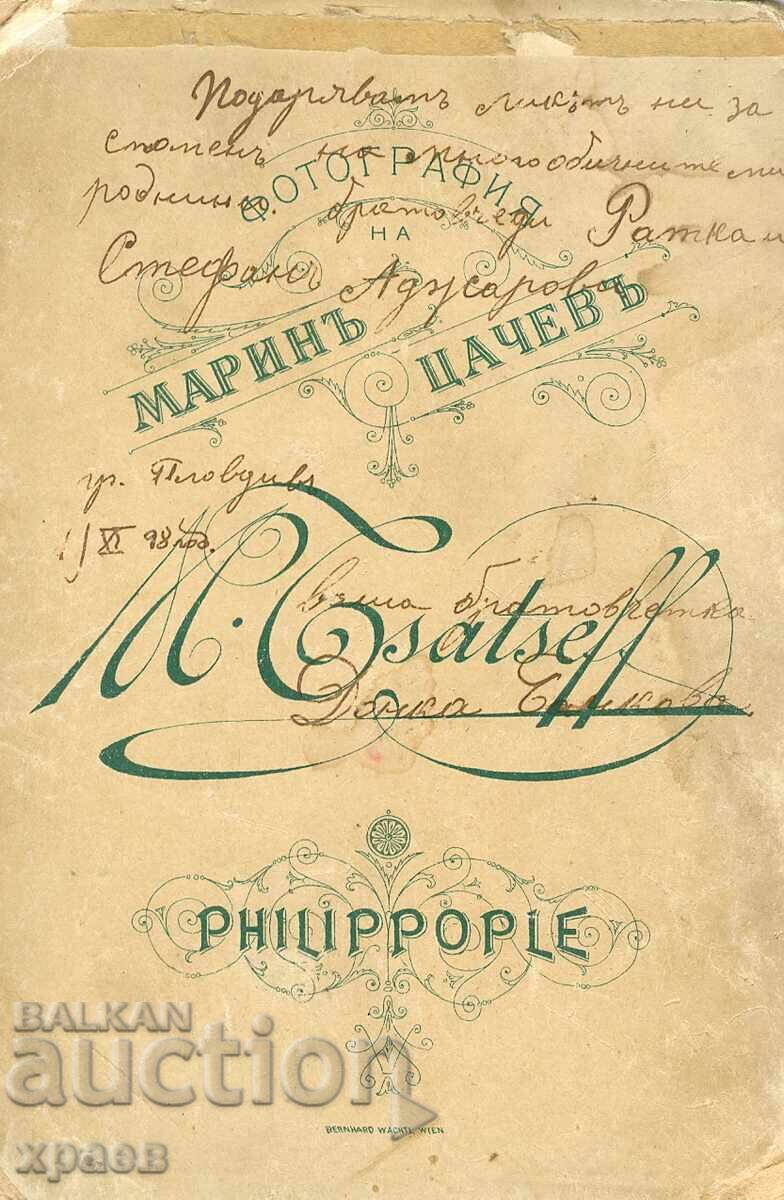 Подарявамъ ликътъ ни за
споменъ на многообичните ми
роднини братовчеди Ратка и
Стефанъ Аджарови
ФОТОГРАФИЯ
НА
МАРИНЪ ЦАЧЕВЪ
гр. Пловдивъ
1/XI 98 год.
M. Tsatseff
ваша братовчетка
Донка
PHILIPPOPLE
BALKAN
auction
храев
BERNHARD WACHTL WIEN